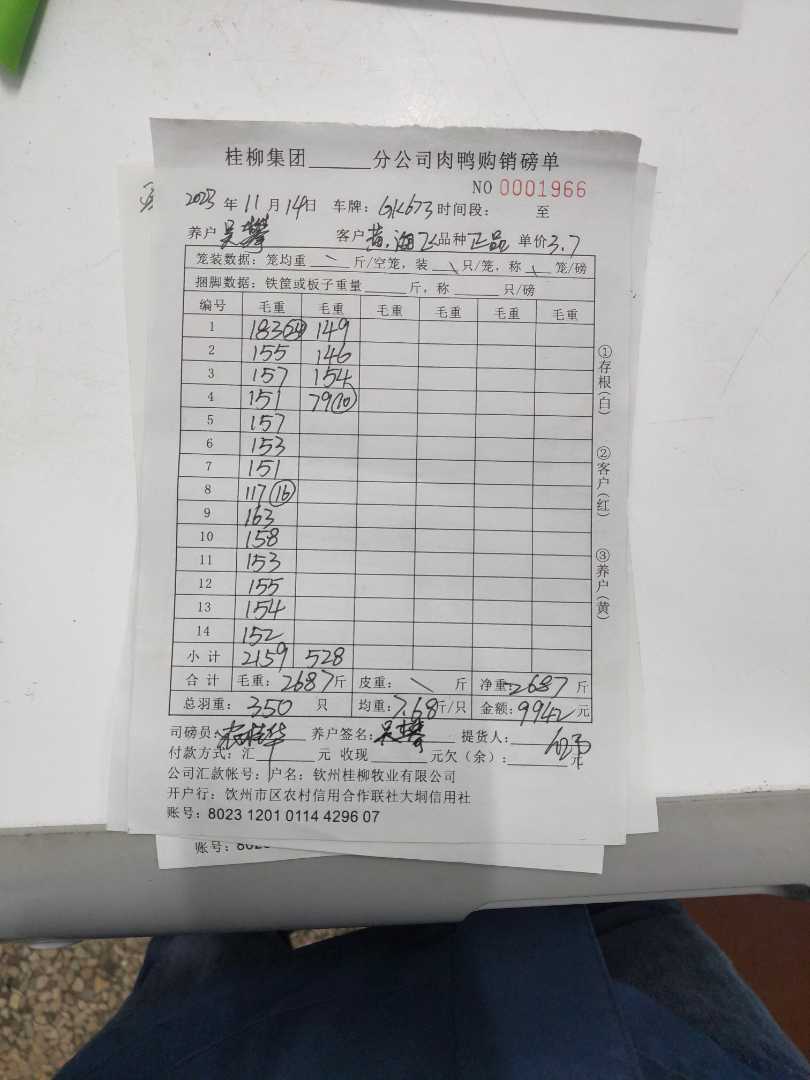 桂柳集团______分公司肉鸭购销磅单
NO 0001966
2023 年 11 月 14日 车牌：GK673 时间段： 至
养户 吴攀 客户 品种 正品 单价 3.7
笼装数据：笼均重 \ 斤/空笼，装 \ 只/笼，称 \ 笼/磅
捆脚数据：铁筐或板子重量______斤，称______只/磅
编号 毛重 毛重 毛重 毛重 毛重 毛重
1 183(24) 149
2 155 146
3 157 154
4 151 79(10)
5 157
6 153
7 151
8 117(16)
9 163
10 158
11 153
12 155
13 154
14 152
小计 2159 528
合计 毛重：2687斤 皮重：\ 斤 净重：2687 斤
总羽重：350 只 均重：7.68斤/只 金额：9942元
司磅员： 养户签名：吴攀 提货人：
付款方式：汇______元 收现______元欠（余）：______元
公司汇款帐号：户名：钦州桂柳牧业有限公司
开户行：饮州市区农村信用合作联社大垌信用社
账号：8023 1201 0114 4296 07
①存根（白）
②客户（红）
③养户（黄）
账号：